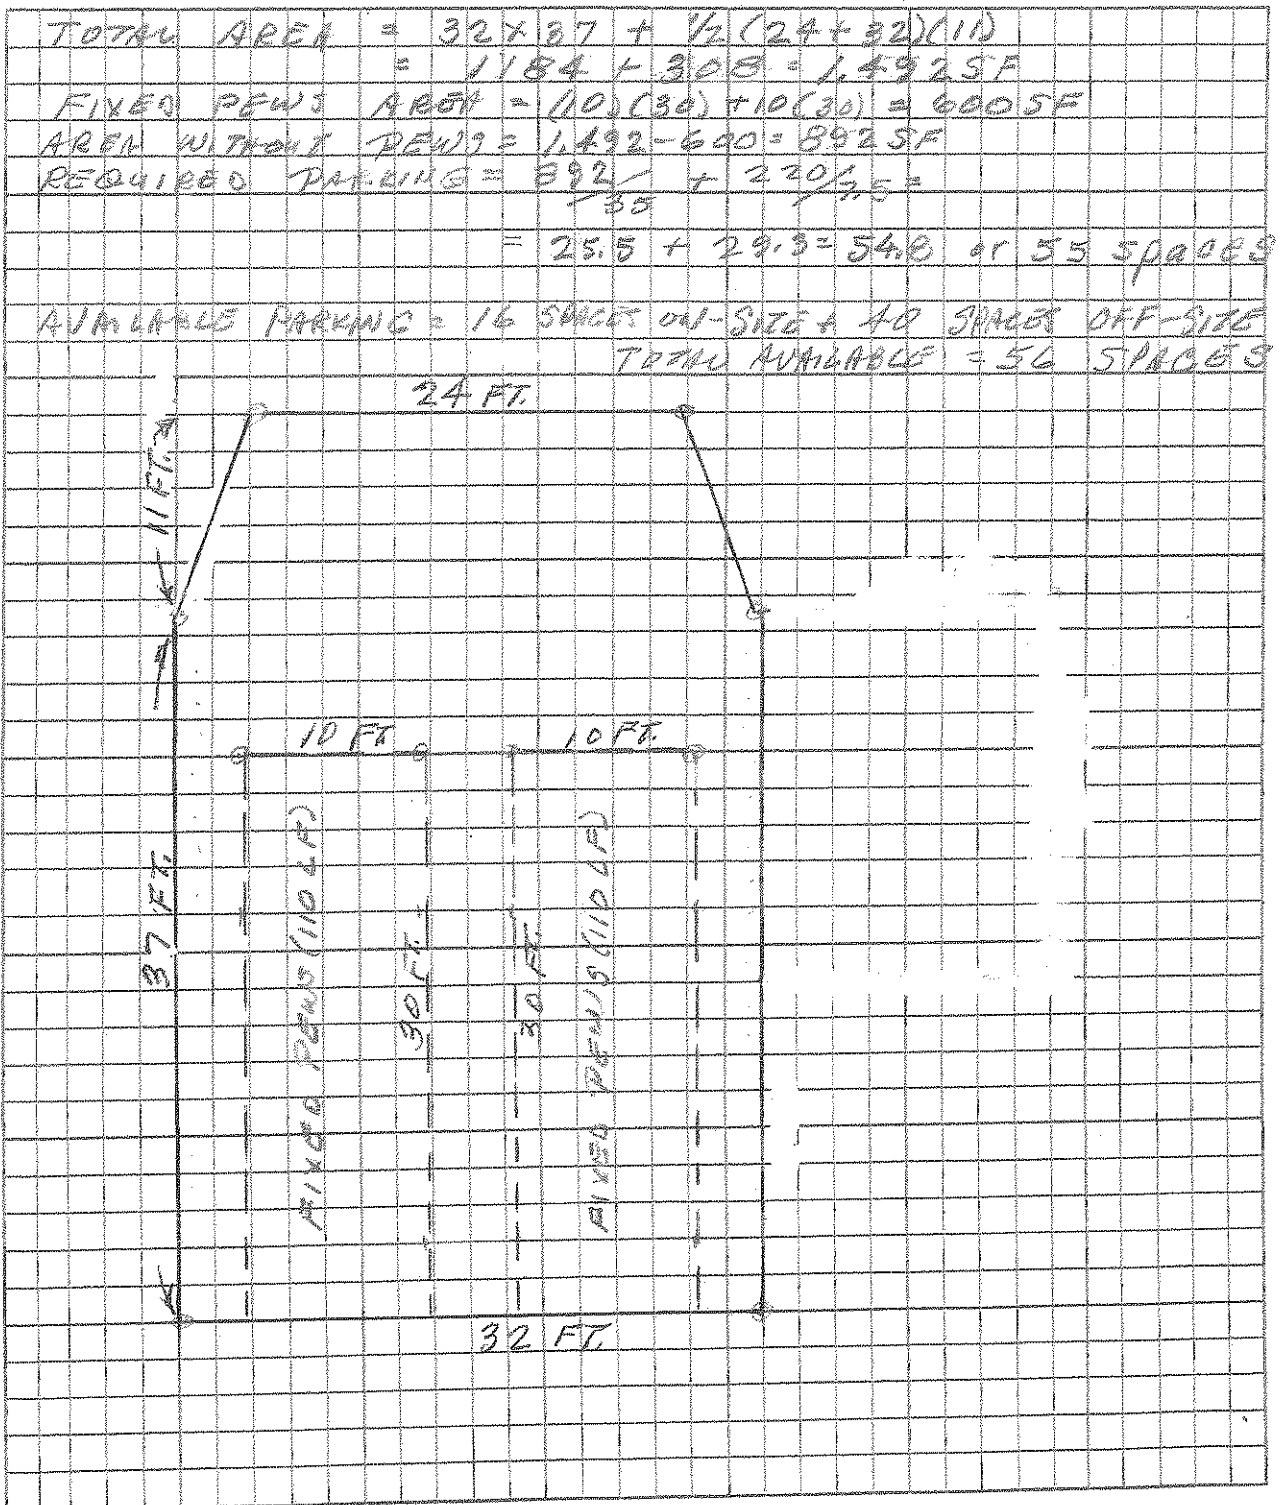 TOTAL AREA = 32 x 37 + 1/2 (24 + 32)(11)
= 1184 + 308 = 1,492 SF
FIXED PEWS AREA = (10)(30) + 10(30) = 600 SF
AREA WITHOUT PEWS = 1,492 - 600 = 892 SF
REQUIRED PARKING = 892/35 + 220/7.5 =
= 25.5 + 29.3 = 54.8 or 55 spaces
AVAILABLE PARKING = 16 SPACES ON-SITE + 40 SPACES OFF-SITE
TOTAL AVAILABLE = 56 SPACES
24 FT.
11 FT.
10 FT.
10 FT.
37 FT.
FIXED PEWS (110 LF)
30 FT.
30 FT.
FIXED PEWS (110 LF)
32 FT.